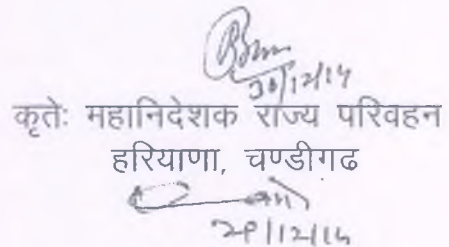 30/12/14
कृतेः महानिदेशक राज्य परिवहन
हरियाणा, चण्डीगढ